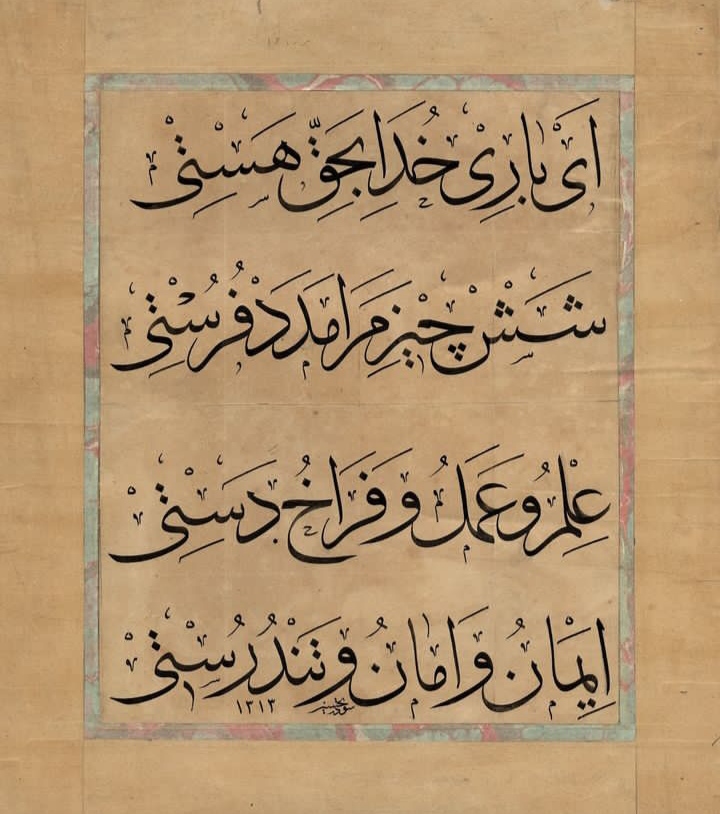 اَىْ بارِىْ خُدَا بِحَقِّ هَسْتِىْ
شَشْ چِيْز مَرَا مَدَدْ فُرُسْتِىْ
عِلْم وُ عَمَلُ وَ فَرَاخُ دَسْتِىْ
اِيْمَانُ وَ اَمانُ وَ تَنْدُرُسْتِىْ
١٣١٣